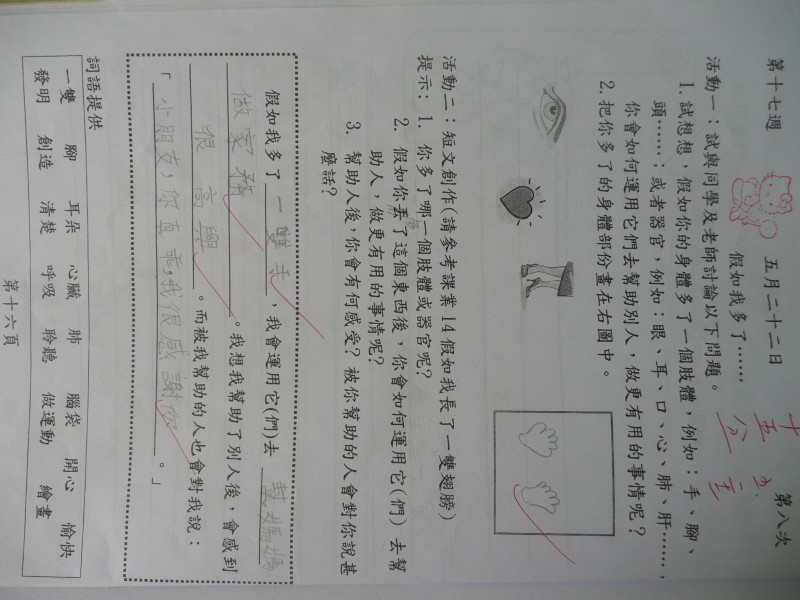 第十七週 五月二十二日 第八次
假如我多了……
十五分
活動一：試與同學及老師討論以下問題。
1. 試想想 假如你的身體多了一個肢體，例如：手、腳、
頭……；或者器官，例如：眼、耳、口、心、肺、肝……，
你會如何運用它們去幫助別人，做更有用的事情呢？
2. 把你多了的身體部份畫在右圖中。
活動二：短文創作(請參考課業14假如我長了一雙翅膀)
提示：1. 你多了哪一個肢體或器官呢？
2. 假如你丟了這個東西後，你會如何運用它(們) 去幫
助人，做更有用的事情呢？
3. 幫助人後，你會有何感受？被你幫助的人會對你說甚
麼話？
假如我多了 一雙手 ，我會運用它(們)去 幫媽媽
做家務 。我想我幫助了別人後，會感到
很高興 。而被我幫助的人也會對我說：
「 小朋友，你真乖，我很感謝你 。」
詞語提供
一雙 腳 耳朵 心臟 肺 腦袋 開心 愉快
發明 創造 清楚 呼吸 聆聽 做運動 繪畫
第十六頁